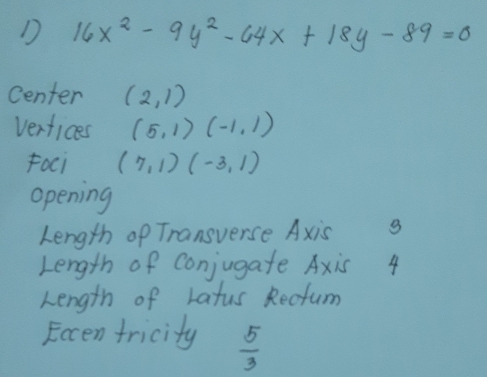 1) 16x² - 9y² - 64x + 18y - 89 = 0
Center (2,1)
Vertices (5,1) (-1,1)
Foci (7,1) (-3,1)
Opening
Length of Transverse Axis 3
Length of Conjugate Axis 4
Length of Latus Rectum
Eccentricity 5/3